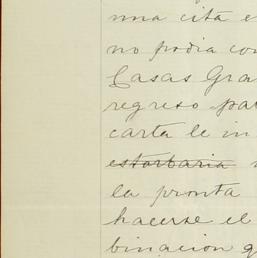 una cita e
no podia con
Casas Gra
regreso par
carta le in
estorbaria
la pronta
hacerse el
binacion q